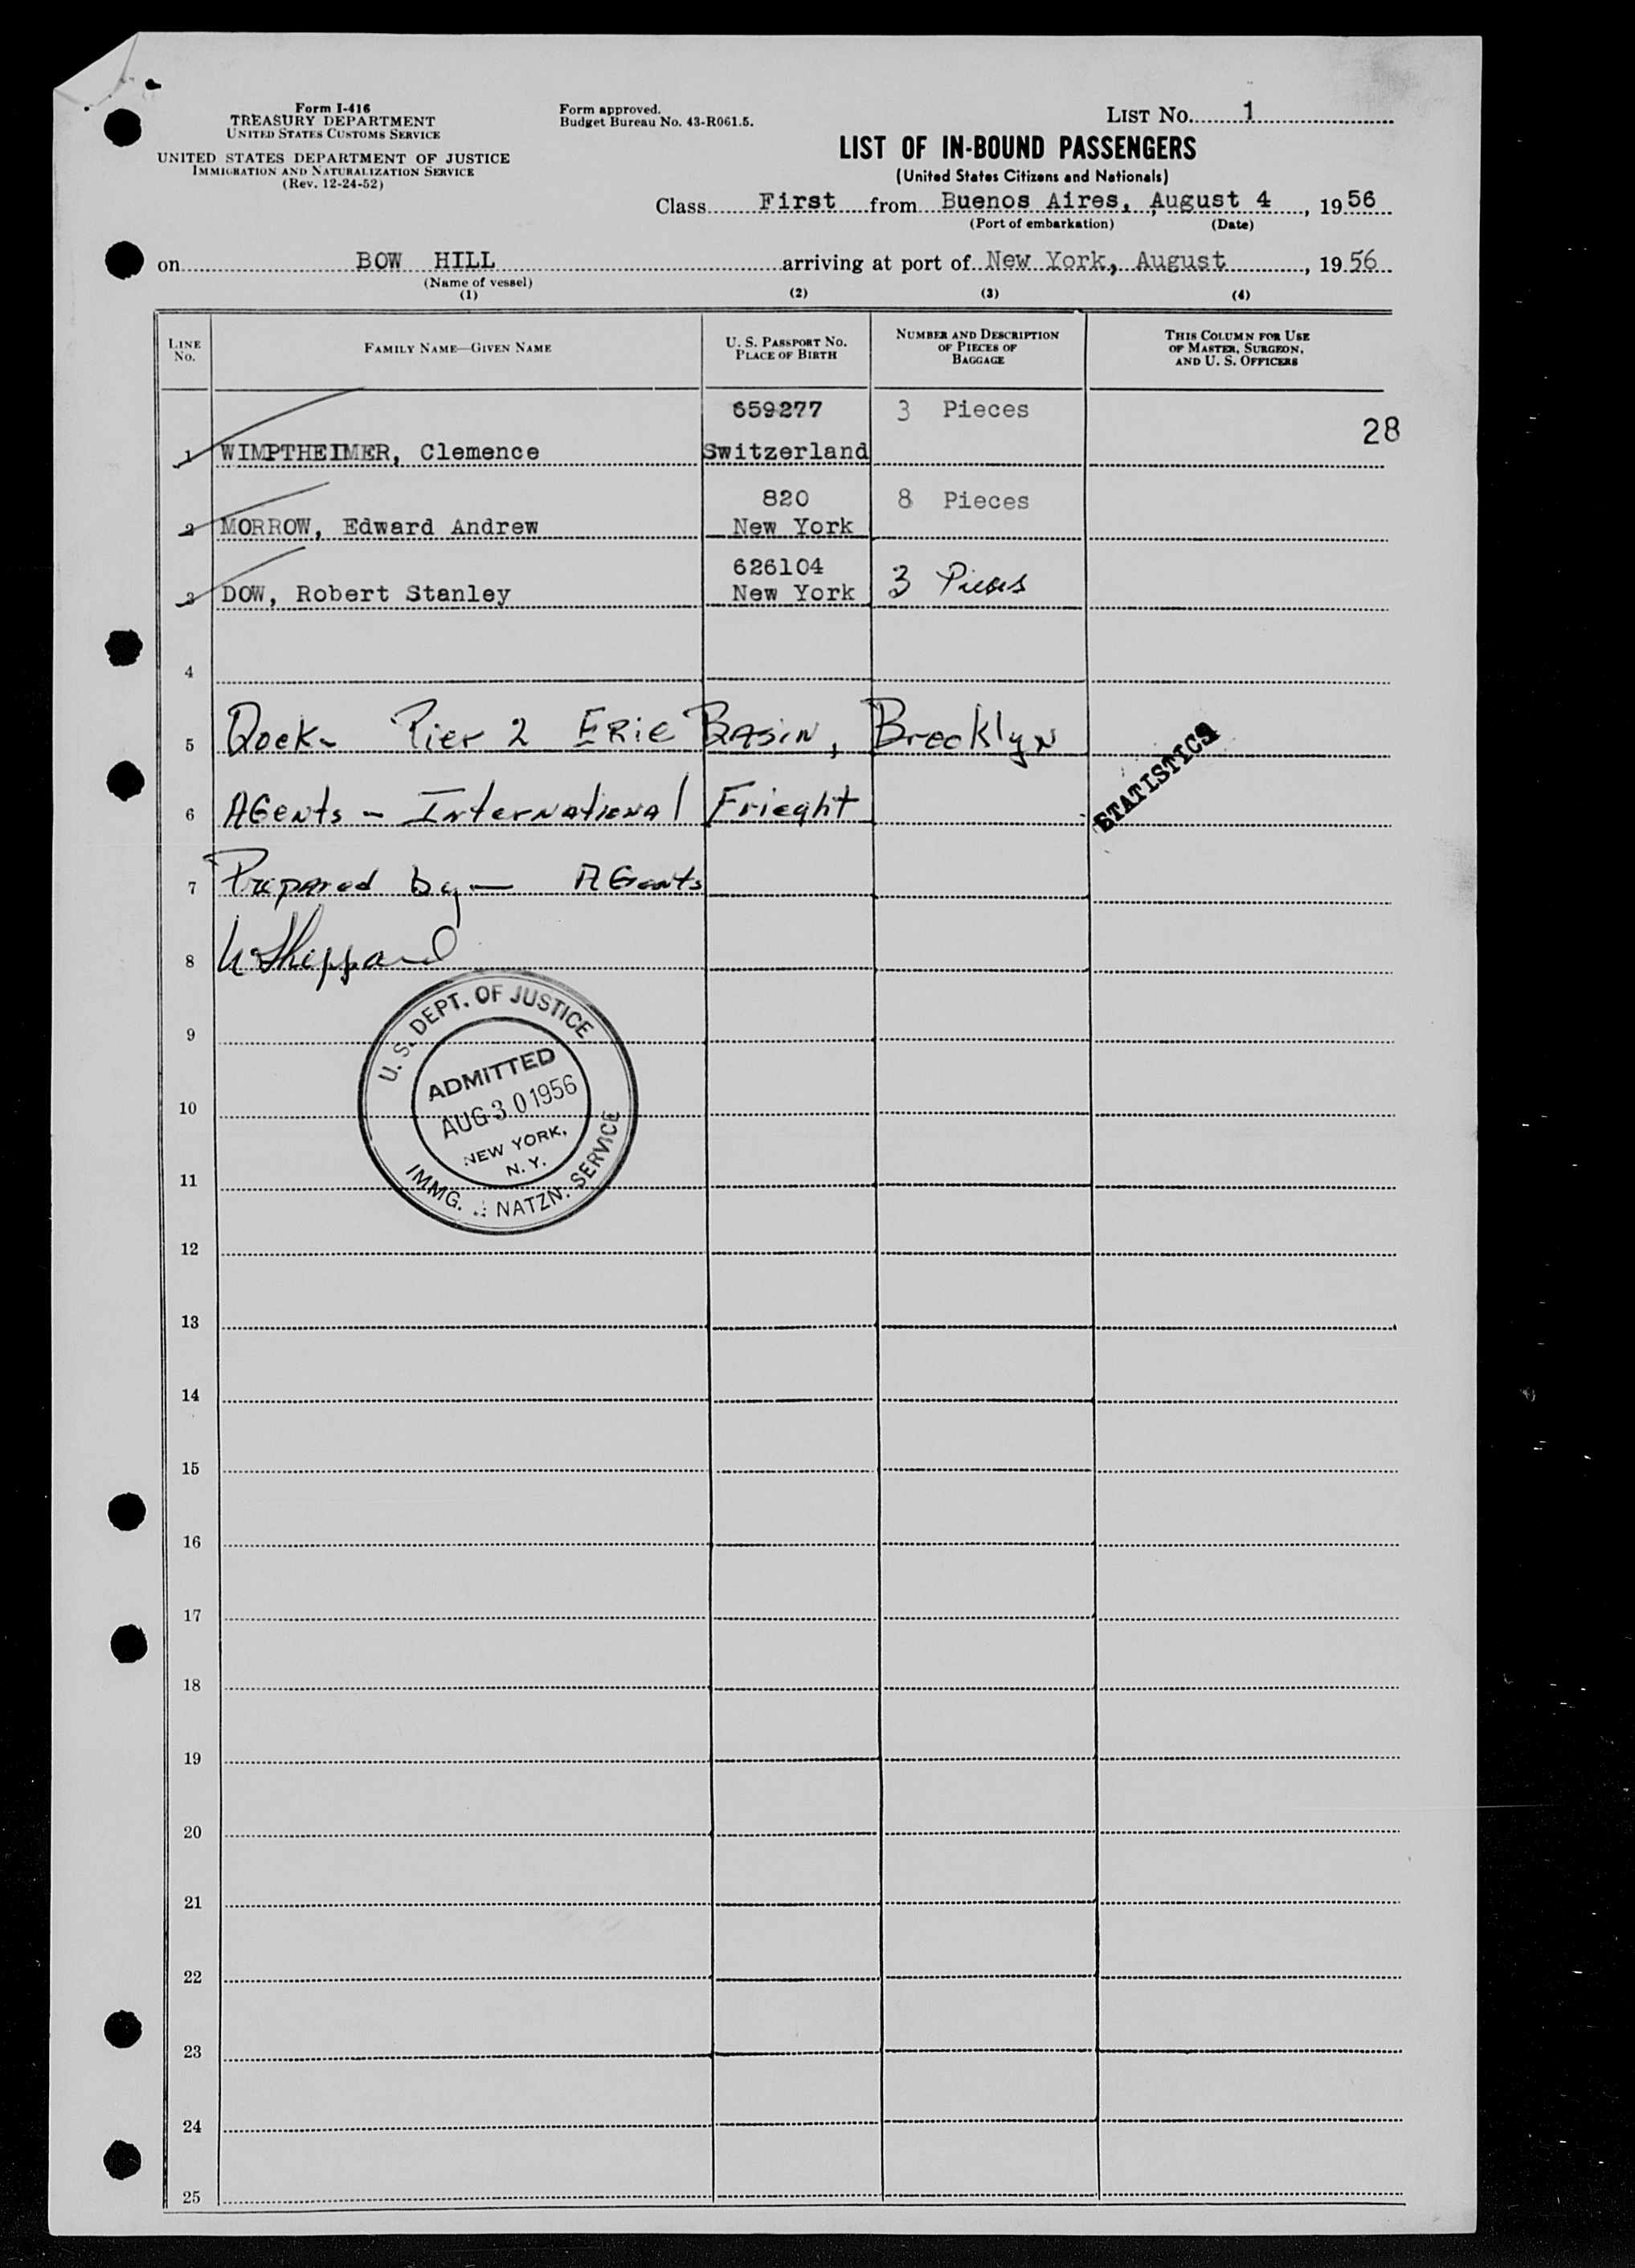 Form I-416
TREASURY DEPARTMENT
UNITED STATES CUSTOMS SERVICE
UNITED STATES DEPARTMENT OF JUSTICE
IMMIGRATION AND NATURALIZATION SERVICE
(Rev. 12-24-52)
Form approved.
Budget Bureau No. 43-R061.5.
LIST No. 1
LIST OF IN-BOUND PASSENGERS
(United States Citizens and Nationals)
Class First from Buenos Aires, August 4, 1956
(Port of embarkation) (Date)
on BOW HILL arriving at port of New York, August, 1956
(Name of vessel)
(1) (2) (3) (4)
LINE No. FAMILY NAME—GIVEN NAME U. S. PASSPORT NO. PLACE OF BIRTH NUMBER AND DESCRIPTION OF PIECES OF BAGGAGE THIS COLUMN FOR USE OF MASTER, SURGEON, AND U. S. OFFICERS
659277 3 Pieces
28
1 WIMPTHEIMER, Clemence Switzerland
820 8 Pieces
2 MORROW, Edward Andrew New York
626104 3 Pieces
3 DOW, Robert Stanley New York
4
5 Dock- Pier 2 ERIE BASIN, Brooklyn
STATISTICS
6 AGents - International Frieght
7 Prepared by - AGents
8 Sheppard
U. S. DEPT. OF JUSTICE
ADMITTED
AUG 30 1956
NEW YORK,
N. Y.
IMMG. NATZN. SERVICE
9
10
11
12
13
14
15
16
17
18
19
20
21
22
23
24
25